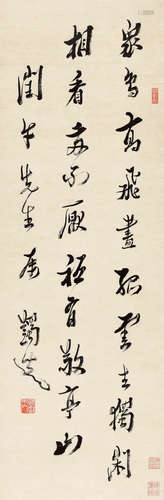 眾鳥高飛盡孤雲去獨閑
相看兩不厭祗有敬亭山
閏生先生屬 蠲叟